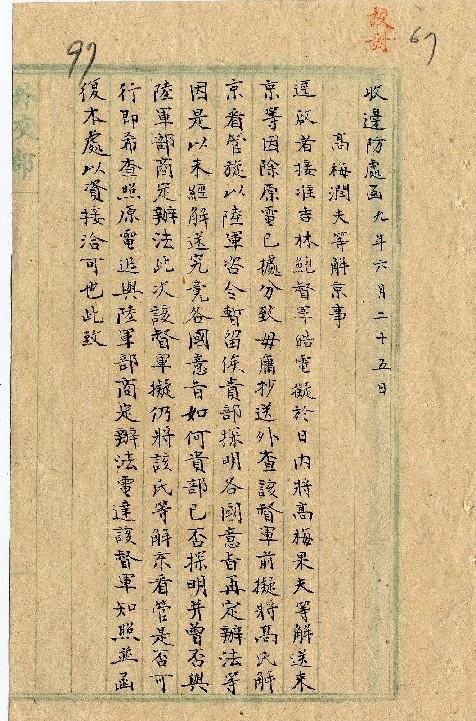 收邊防處函九年六月二十五日
高梅潤夫等解京事
逕啟者接准吉林鮑督軍皓電擬於日內將高梅果夫等解送來
京等因除原電已據分致毋庸抄送外查該督軍前擬將高氏解
京看管旋以陸軍咨令暫留俟貴部探明各國意旨再定辦法等
因是以未經解送究竟各國意旨如何貴部已否探明并曾否與
陸軍部商定辦法此次該督軍擬仍將該氏等解京看管是否可
行即希查照原電迅與陸軍部商定辦法電達該督軍知照並函
復本處以資接洽可也此致
97
67